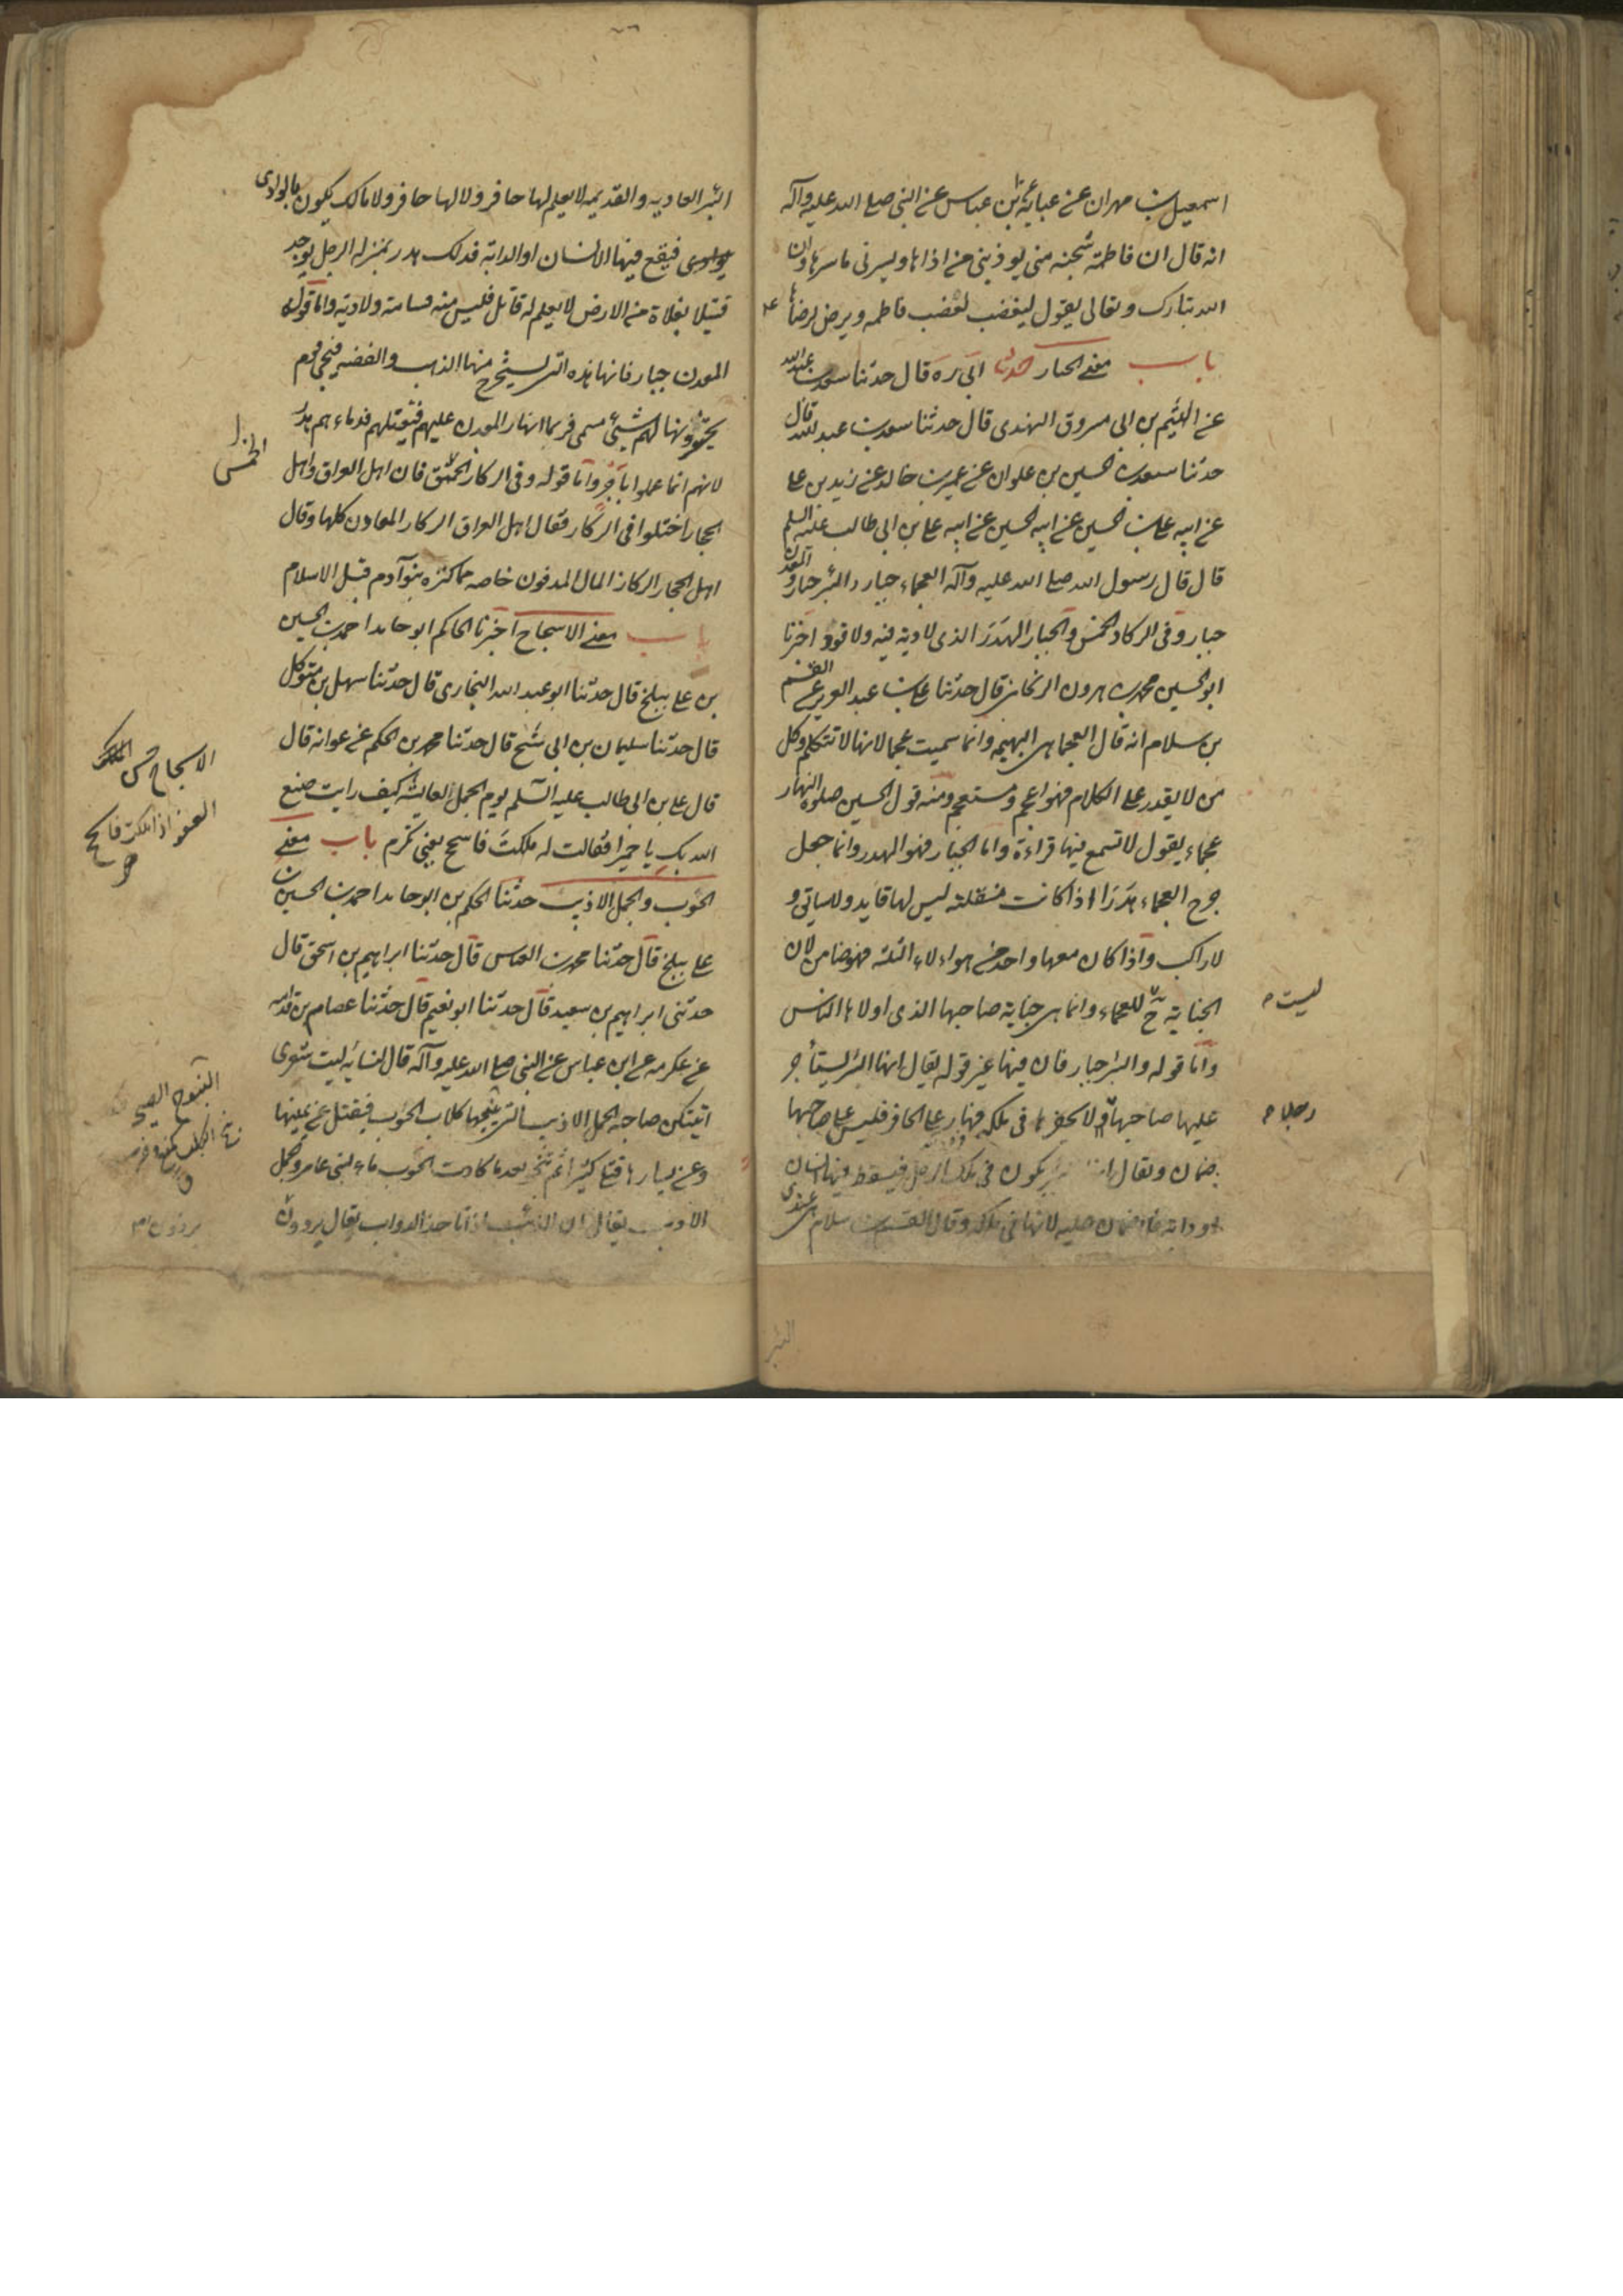 اسمعيل بن مهران عن عباية عن ابن عباس عن النبي صلى الله عليه وآله
انه قال ان فاطمة شجنه مني يوذيني من اذاها ويسرني ما سرها وان
الله تبارك وتعالى يقول ليغضب لغضب فاطمه ويرضى لرضاها
باب معنى الجبار حدثنا ابي ره قال حدثنا سعد بن عبد الله
عن الهيثم بن ابي مسروق النهدي قال حدثنا سعد بن عبد الله قال
حدثنا الحسين بن علوان عن عمرو بن خالد عن زيد بن على
عن ابيه على بن الحسين عن ابيه الحسين عن ابيه على بن ابي طالب عليه السلم
قال قال رسول الله صلى الله عليه وآله العجماء جبار والبئر جبار والمعدن
جبار وفي الركاز الخمس والجبار الهدر الذي لا دية فيه ولا قود اخبرنا
ابو الحسين محمد بن هرون الزنجاني قال حدثنا على بن عبد العزيز عن القسم
بن سلام انه قال العجما هي البهيمه وانما سميت عجما لانها لا تتكلم وكل
من لا يقدر على الكلام فهو اعجم ومستعجم ومنه قول الحسن صلوة النهار
عجماء يقول لا تسمع فيها قراءة واما الجبار فهو الهدر وانما جعل
جرح العجماء هدرا اذا كانت منفلته ليس لها قايد ولا سايق و
لا راكب واذا كان معها واحد من هواء لاء الثلثه فهو ضامن لان
الجناية ح للعجماء وانما هي جناية صاحبها الذي اولاها الناس
ليست
واما قوله والبئر جبار فان فيها غير قوله يقال انها البئر يستأجر
عليها صاحبها رجلا يحفرها في ملكه فينهار على الحافر فليس على صاحبها
رجلا
ضمان ويقال انها البئر يكون في ملك الرجل فيسقط فيها انسان
او دابة فلا ضمان عليه لانها في ملكه وقال القسم بن سلام هي عندي
البئر
البئر العاديه والقديمه لا يعلم لها حافر ولا لها حافر ولا مالك يكون بالوادي
فيقع فيها الانسان او الدابة فذلك هدر بمنزلة الرجل يوجد
قتيلا بفلاة من الارض لا يعلم له قاتل فليس منه قسامة ولا دية واما قوله
المعدن جبار فانها هذه التي يستخرج منها الذهب والفضه فيجئ قوم
يحتفرونها لهم بشئ مسمى فربما انهار المعدن عليهم فيقتلهم فدماء هم هدر
لانهم انما عملوا باجر واما قوله وفي الركاز الخمس فان اهل العراق واهل
الخمس
الحجاز اختلفوا في الركاز فقال اهل العراق الركاز المعادن كلها وقال
اهل الحجاز الركاز المال المدفون خاصه مما كنزه بنو آدم قبل الاسلام
باب معنى الاسجاح اخبرنا الحاكم ابو حامد احمد بن الحسين
بن على ببلخ قال حدثنا ابو عبد الله البخاري قال حدثنا سهل بن متوكل
قال حدثنا سليمان بن ابي شيخ قال حدثنا محمد بن الحكم عن عوانه قال
الاسجاح حسن
قال على بن ابي طالب عليه السلم يوم الجمل لعائشه كيف رايت صنع
العفو اذا ملكت فاسجح
الله بك يا حميرا فقالت له ملكت فاسجح يعني تكرم باب معنى
الحوب والجمل الاذيب حدثنا الحكم بن ابو حامد احمد بن الحسين بن
على ببلخ قال حدثنا محمد بن العباس قال حدثنا ابراهيم بن اسحق قال
حدثني ابراهيم بن سعيد قال حدثنا ابو نعيم قال حدثنا عصام بن قدامه
عن عكرمه عن ابن عباس عن النبي صلى الله عليه وآله قال لنسايه ليت شعري
ايتكن صاحبة الجمل الاذيب التي ينبحها كلاب الحوب فيقتل عن يمينها
وعن يسارها قتلى كثيرا ثم تنجو بعد ما كادت الحوب ماء لبني عامر والجمل
الاذيب يقال ان الذئبه اذا اتاحد الدواب يقال برذون